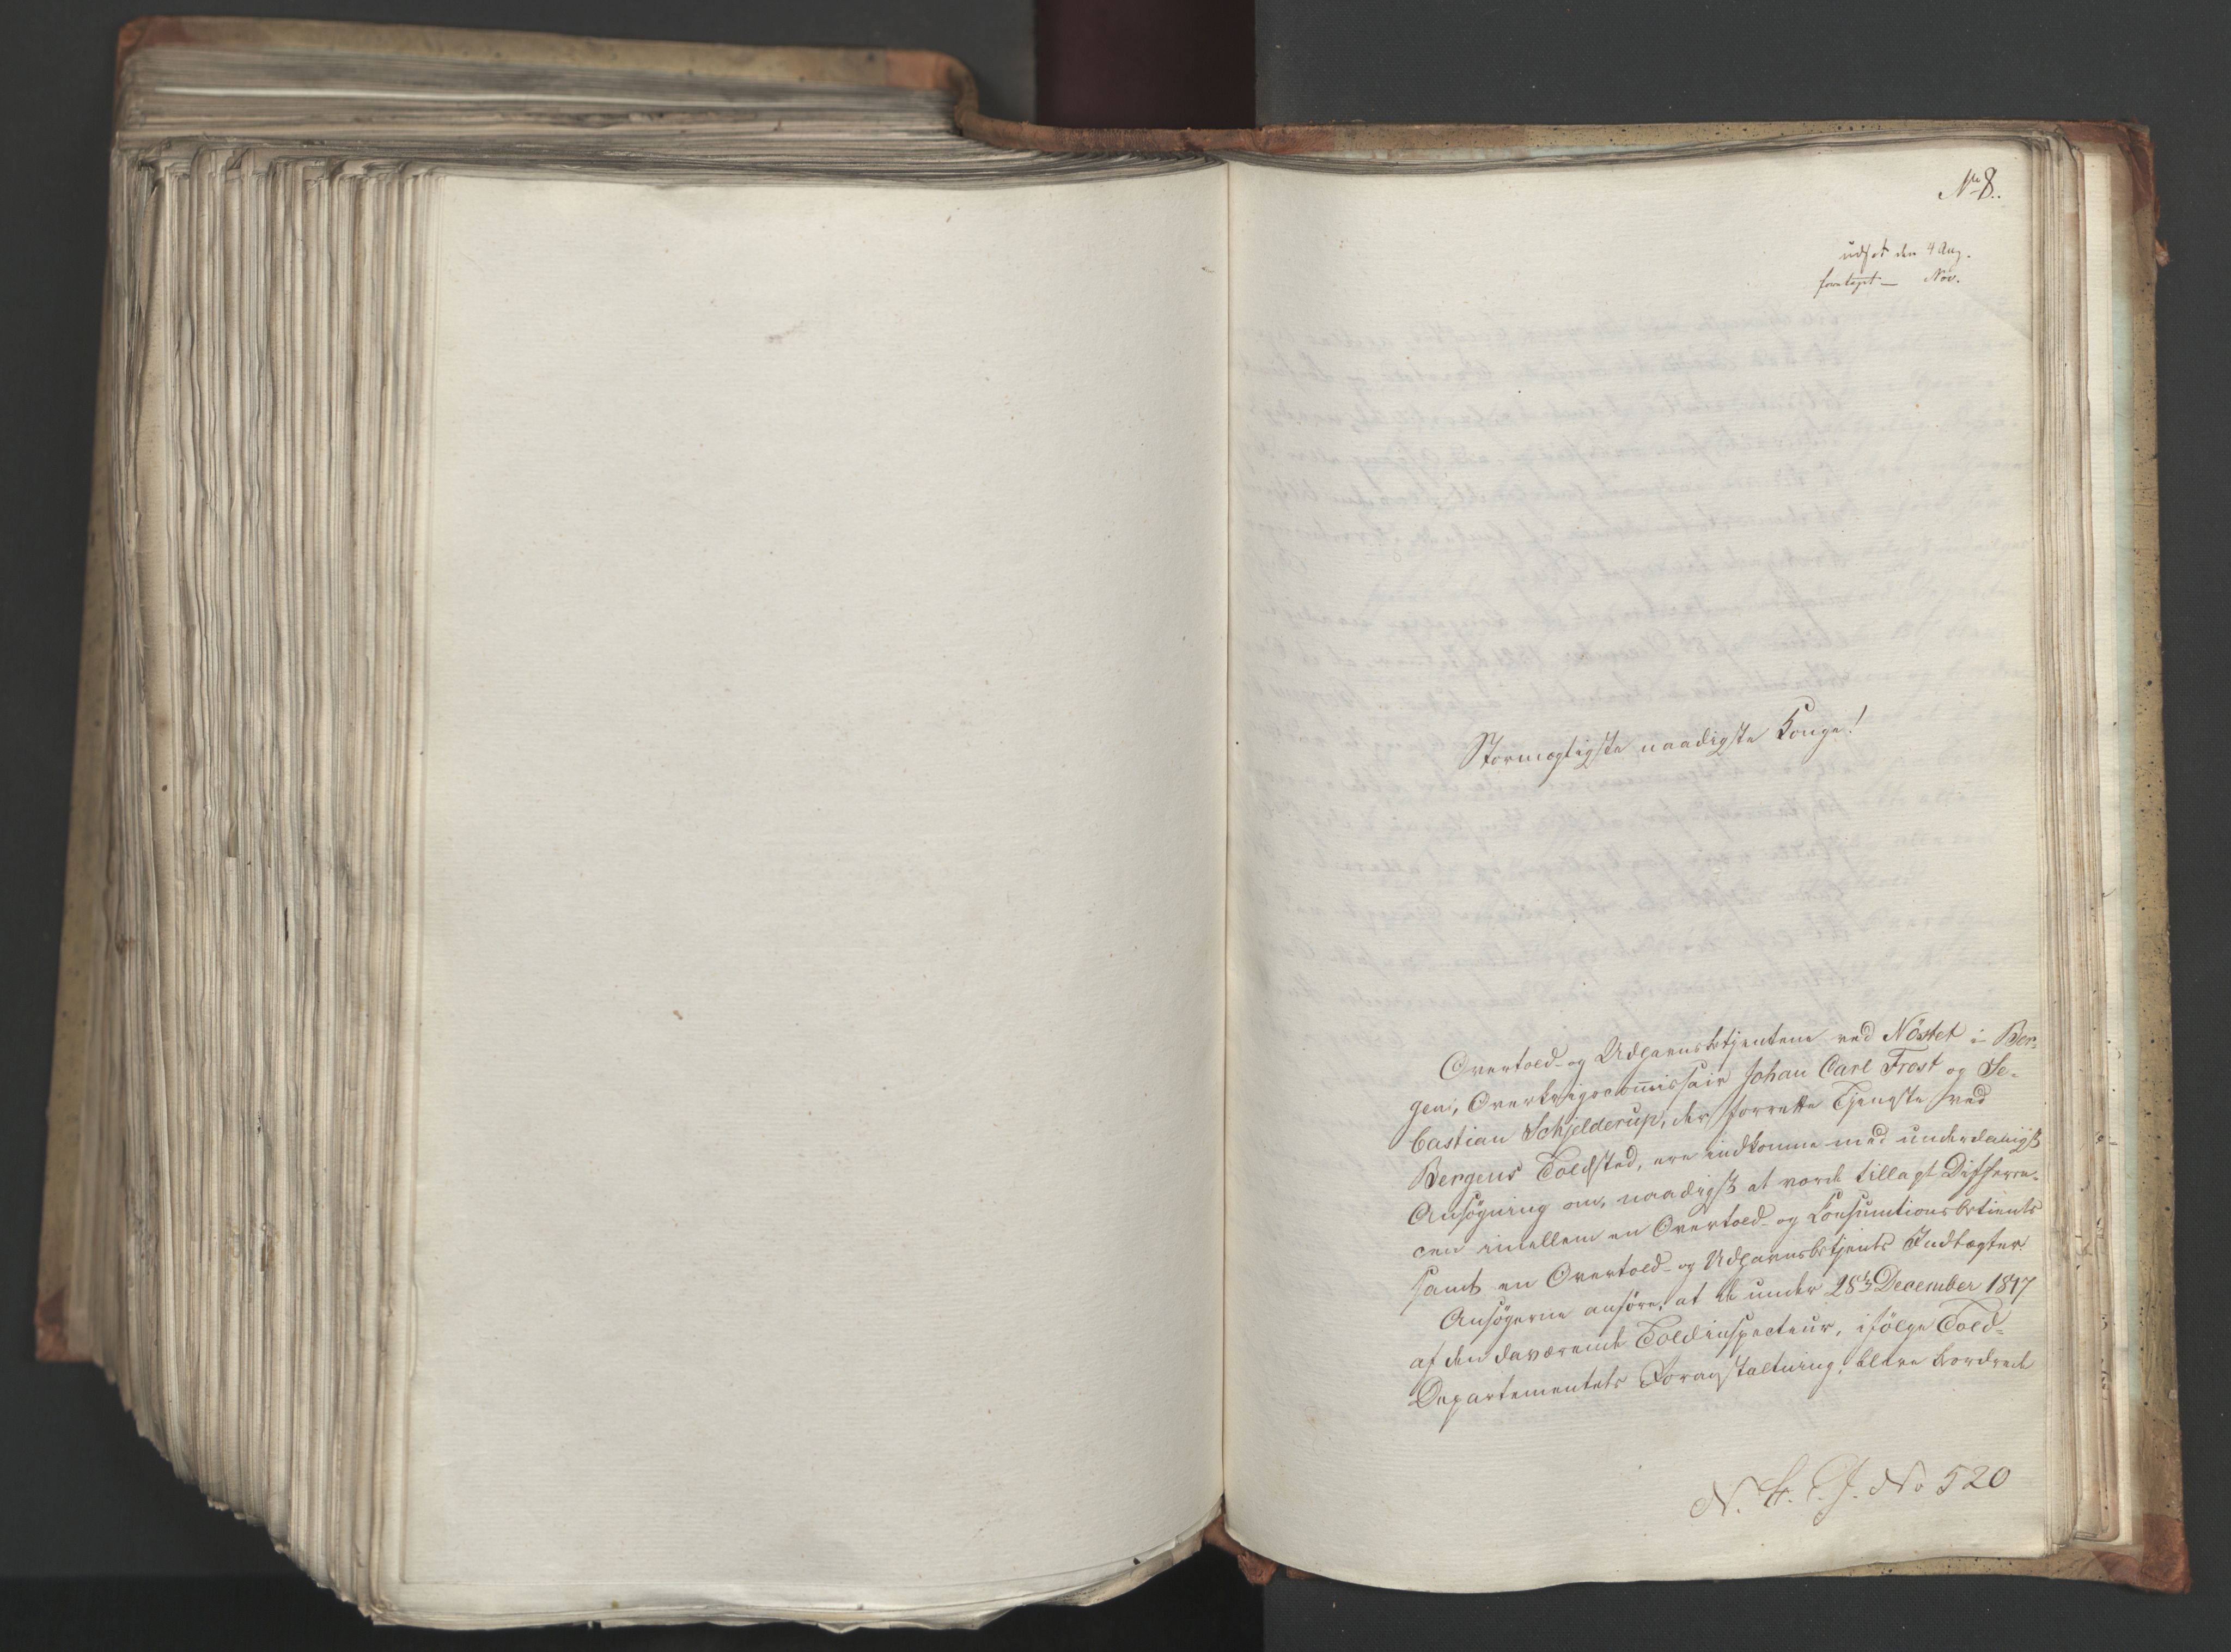 No 8.
udsat den 4 Aug.
foretaget — Nov.
Stormægtigste naadigste Konge!
Overtold- og Udhavnsbetjentene ved Nöstet i Ber-
gen, Overkrigscommissair Johan Carl Frost og Se-
bastian Schjelderup, der forrette Tjeneste ved
Bergens Toldsted, ere indkomne med underdanigst
Ansögning om, naadigst at vorde tillagt Differen-
cen imellem en Overtold- og Consumtionsbetients
samt en Overtold- og Udhavnsbetjents Indtægter.
Ansögerne anföre, at de under 28de December 1817
af den daværende Toldinspecteur, ifölge Told-
Departementets Foranstaltning, bleve beordrede
No 520